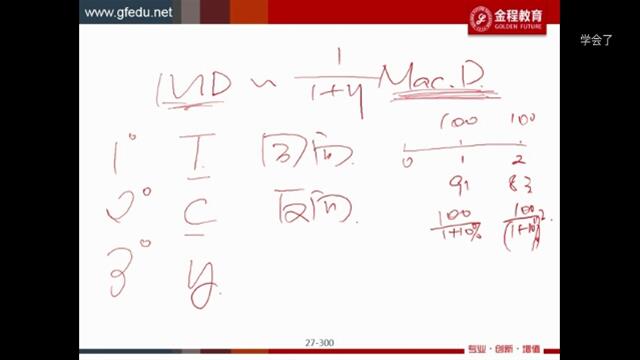 www.gfedu.net
金程教育
GOLDEN FUTURE
学会了
MD ~ 1/(1+y) Mac.D.
1° T 同向
100 100
0 1 2
91 83
2° C 反向
100/(1+10%) 100/(1+10%)²
3° y
27-300
专业·创新·增值